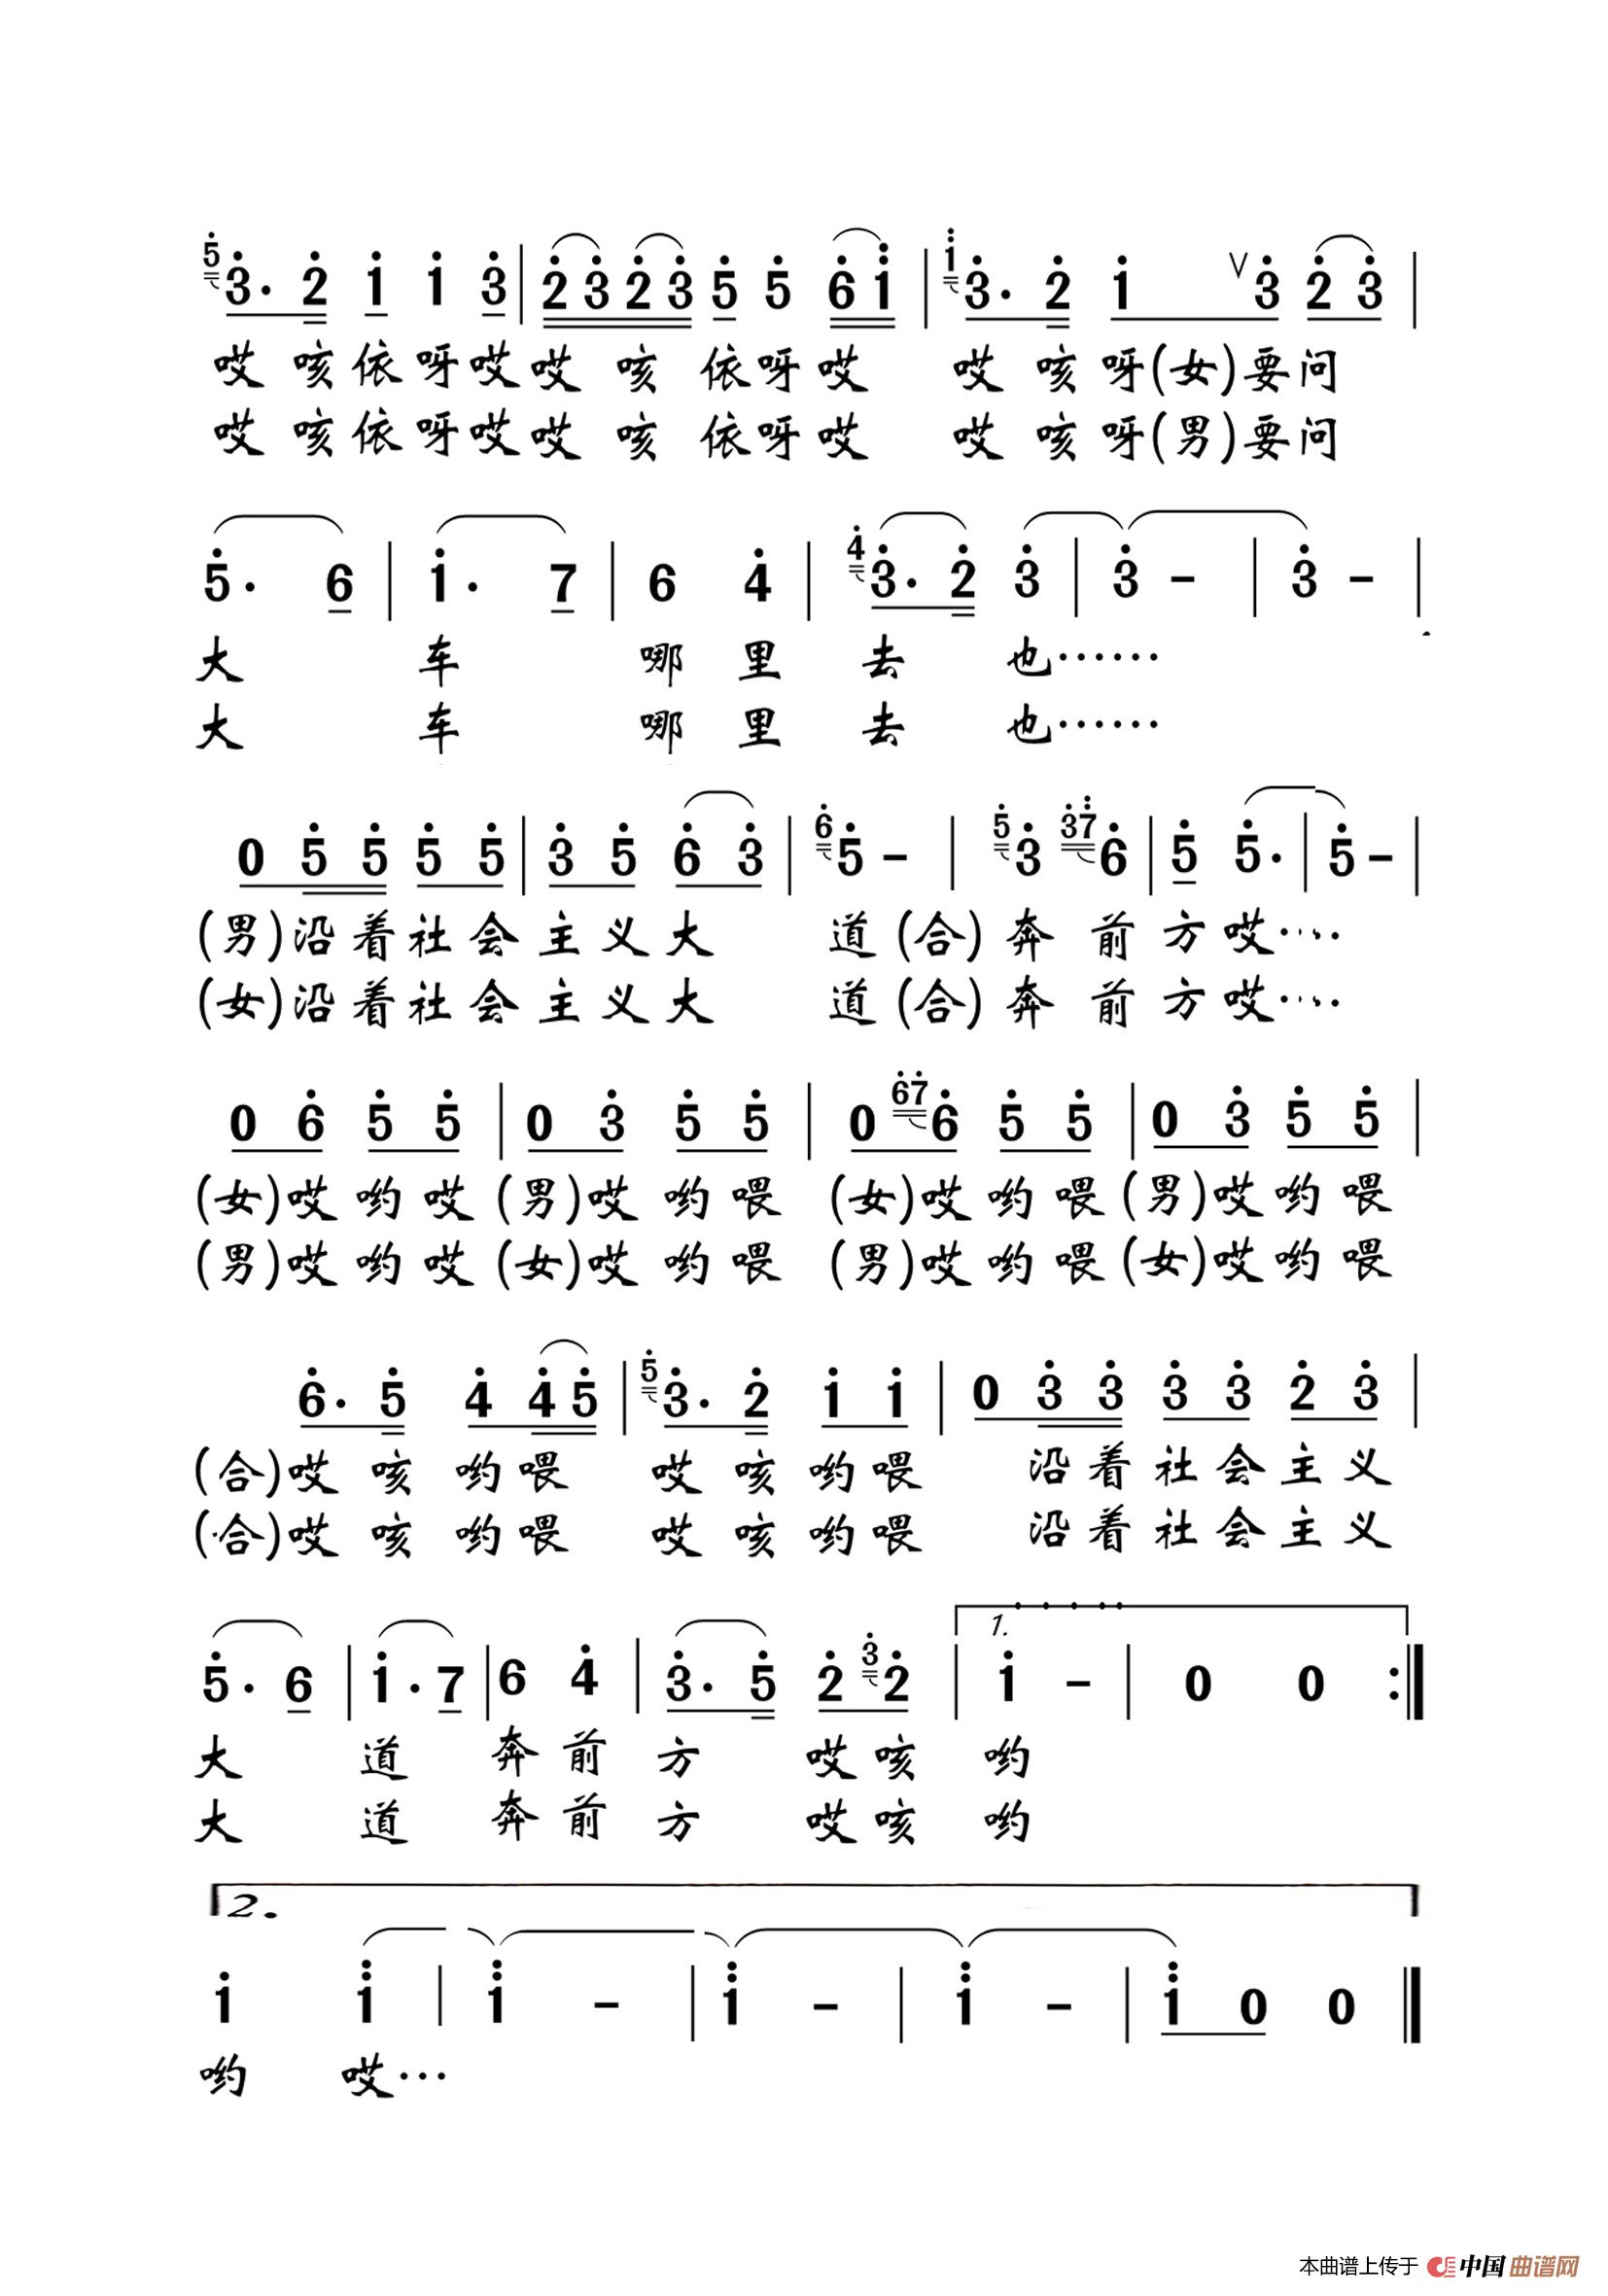 5 3· 2 1 1 3 | 2 3 2 3 5 5 6 1 | 1 3· 2 1 ∨ 3 2 3 |
哎 咳 依 呀 哎 哎 咳 依 呀 哎 哎 咳 呀 (女) 要 问
哎 咳 依 呀 哎 哎 咳 依 呀 哎 哎 咳 呀 (男) 要 问
5· 6 | 1· 7 | 6 4 | 4 3· 2 3 | 3 - | 3 - |
大 车 哪 里 去 也……
大 车 哪 里 去 也……
0 5 5 5 5 | 3 5 6 3 | 6 5 - | 5 3 37 6 | 5 5· | 5 - |
(男) 沿 着 社 会 主 义 大 道 (合) 奔 前 方 哎……
(女) 沿 着 社 会 主 义 大 道 (合) 奔 前 方 哎……
0 6 5 5 | 0 3 5 5 | 0 67 6 5 5 | 0 3 5 5 |
(女) 哎 哟 哎 (男) 哎 哟 喂 (女) 哎 哟 喂 (男) 哎 哟 喂
(男) 哎 哟 哎 (女) 哎 哟 喂 (男) 哎 哟 喂 (女) 哎 哟 喂
6· 5 4 4 5 | 5 3· 2 1 1 | 0 3 3 3 3 2 3 |
(合) 哎 咳 哟 喂 哎 咳 哟 喂 沿 着 社 会 主 义
(合) 哎 咳 哟 喂 哎 咳 哟 喂 沿 着 社 会 主 义
1.
5· 6 | 1· 7 | 6 4 | 3· 5 2 3 2 | 1 - | 0 0 :‖
大 道 奔 前 方 哎 咳 哟
大 道 奔 前 方 哎 咳 哟
2.
1 1 | 1 - | 1 - | 1 - | 1 0 0 ‖
哟 哎…
本曲谱上传于 中国曲谱网